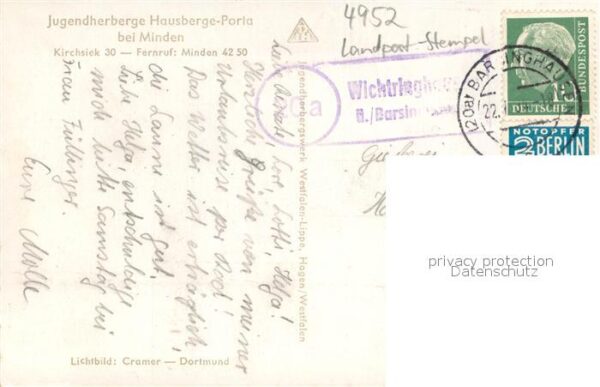 Jugendherberge Hausberge-Porta
bei Minden
Kirchsiek 30 — Fernruf: Minden 42 50
4952
Landpost-Stempel
20a
Wichtringhau
ü./Barsin
(20a) BARSINGHAU
22.
DEUTSCHE
BUNDESPOST
NOTOPFER
2 BERLIN
Jugendherbergswerk Westfalen-Lippe, Hagen/Westfalen
Liebe Lore, Lotti, Helga!
Herzliche Grüße von meiner
Urlaubsreise per Rad!
Das Wetter ist erträglich,
die Laune ist gut.
Liebe Helga, entschuldige
mich bitte Samstag bei
Frau Füllinger.
Eure
privacy protection
Datenschutz
Lichtbild: Cramer — Dortmund